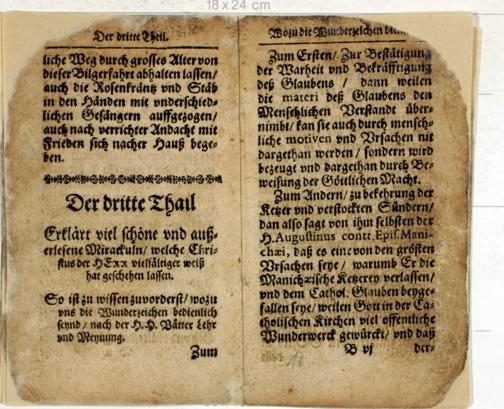 18 x 24 cm
Der dritte Theil.
liche Weg durch grosses Alter von
dieser Bilgerfahrt abhalten lassen/
auch die Rosenkräntz vnd Stäb
in den Händen mit vnderschied-
lichen Gesängern auffgezogen/
auch nach verrichter Andacht mit
Frieden sich nacher Hauß bege-
ben.
Der dritte Thail
Erklärt viel schöne vnd auß-
erlesene Mirackuln/ welche Chri-
stus der HErr vielfältiger weiß
hat geschehen lassen.
So ist zu wissen zuvorderst/ wozu
vns die Wunderzeichen bedienlich
seynd/ nach der H. H. Vätter Lehr
vnd Meynung.
Zum
Wozu die Wunderzeichen
Zum Ersten/ Zur Bestätigung
der Warheit vnd Bekräfftigung
deß Glaubens/ dann weilen
die materi deß Glaubens den
Menschlichen Verstandt über-
nimbt/ kan sie auch durch mensch-
liche motiven vnd Vrsachen nit
dargethan werden/ sondern wird
bezeugt vnd dargethan durch Be-
weisung der Göttlichen Macht.
Zum Andern/ zu bekehrung der
Ketzer vnd verstockten Sündern/
dan also sagt von ihm selbsten der
H. Augustinus contt. Epif. Mani-
chæi, daß es eine von den grösten
Vrsachen seye/ warumb Er die
Manichæische Ketzerey verlassen/
vnd dem Cathol. Glauben beyge-
fallen seye/ weilen Gott in der Ca-
tholischen Kirchen viel offentliche
Wunderwerck gewürckt/ vnd daß
B vj der-